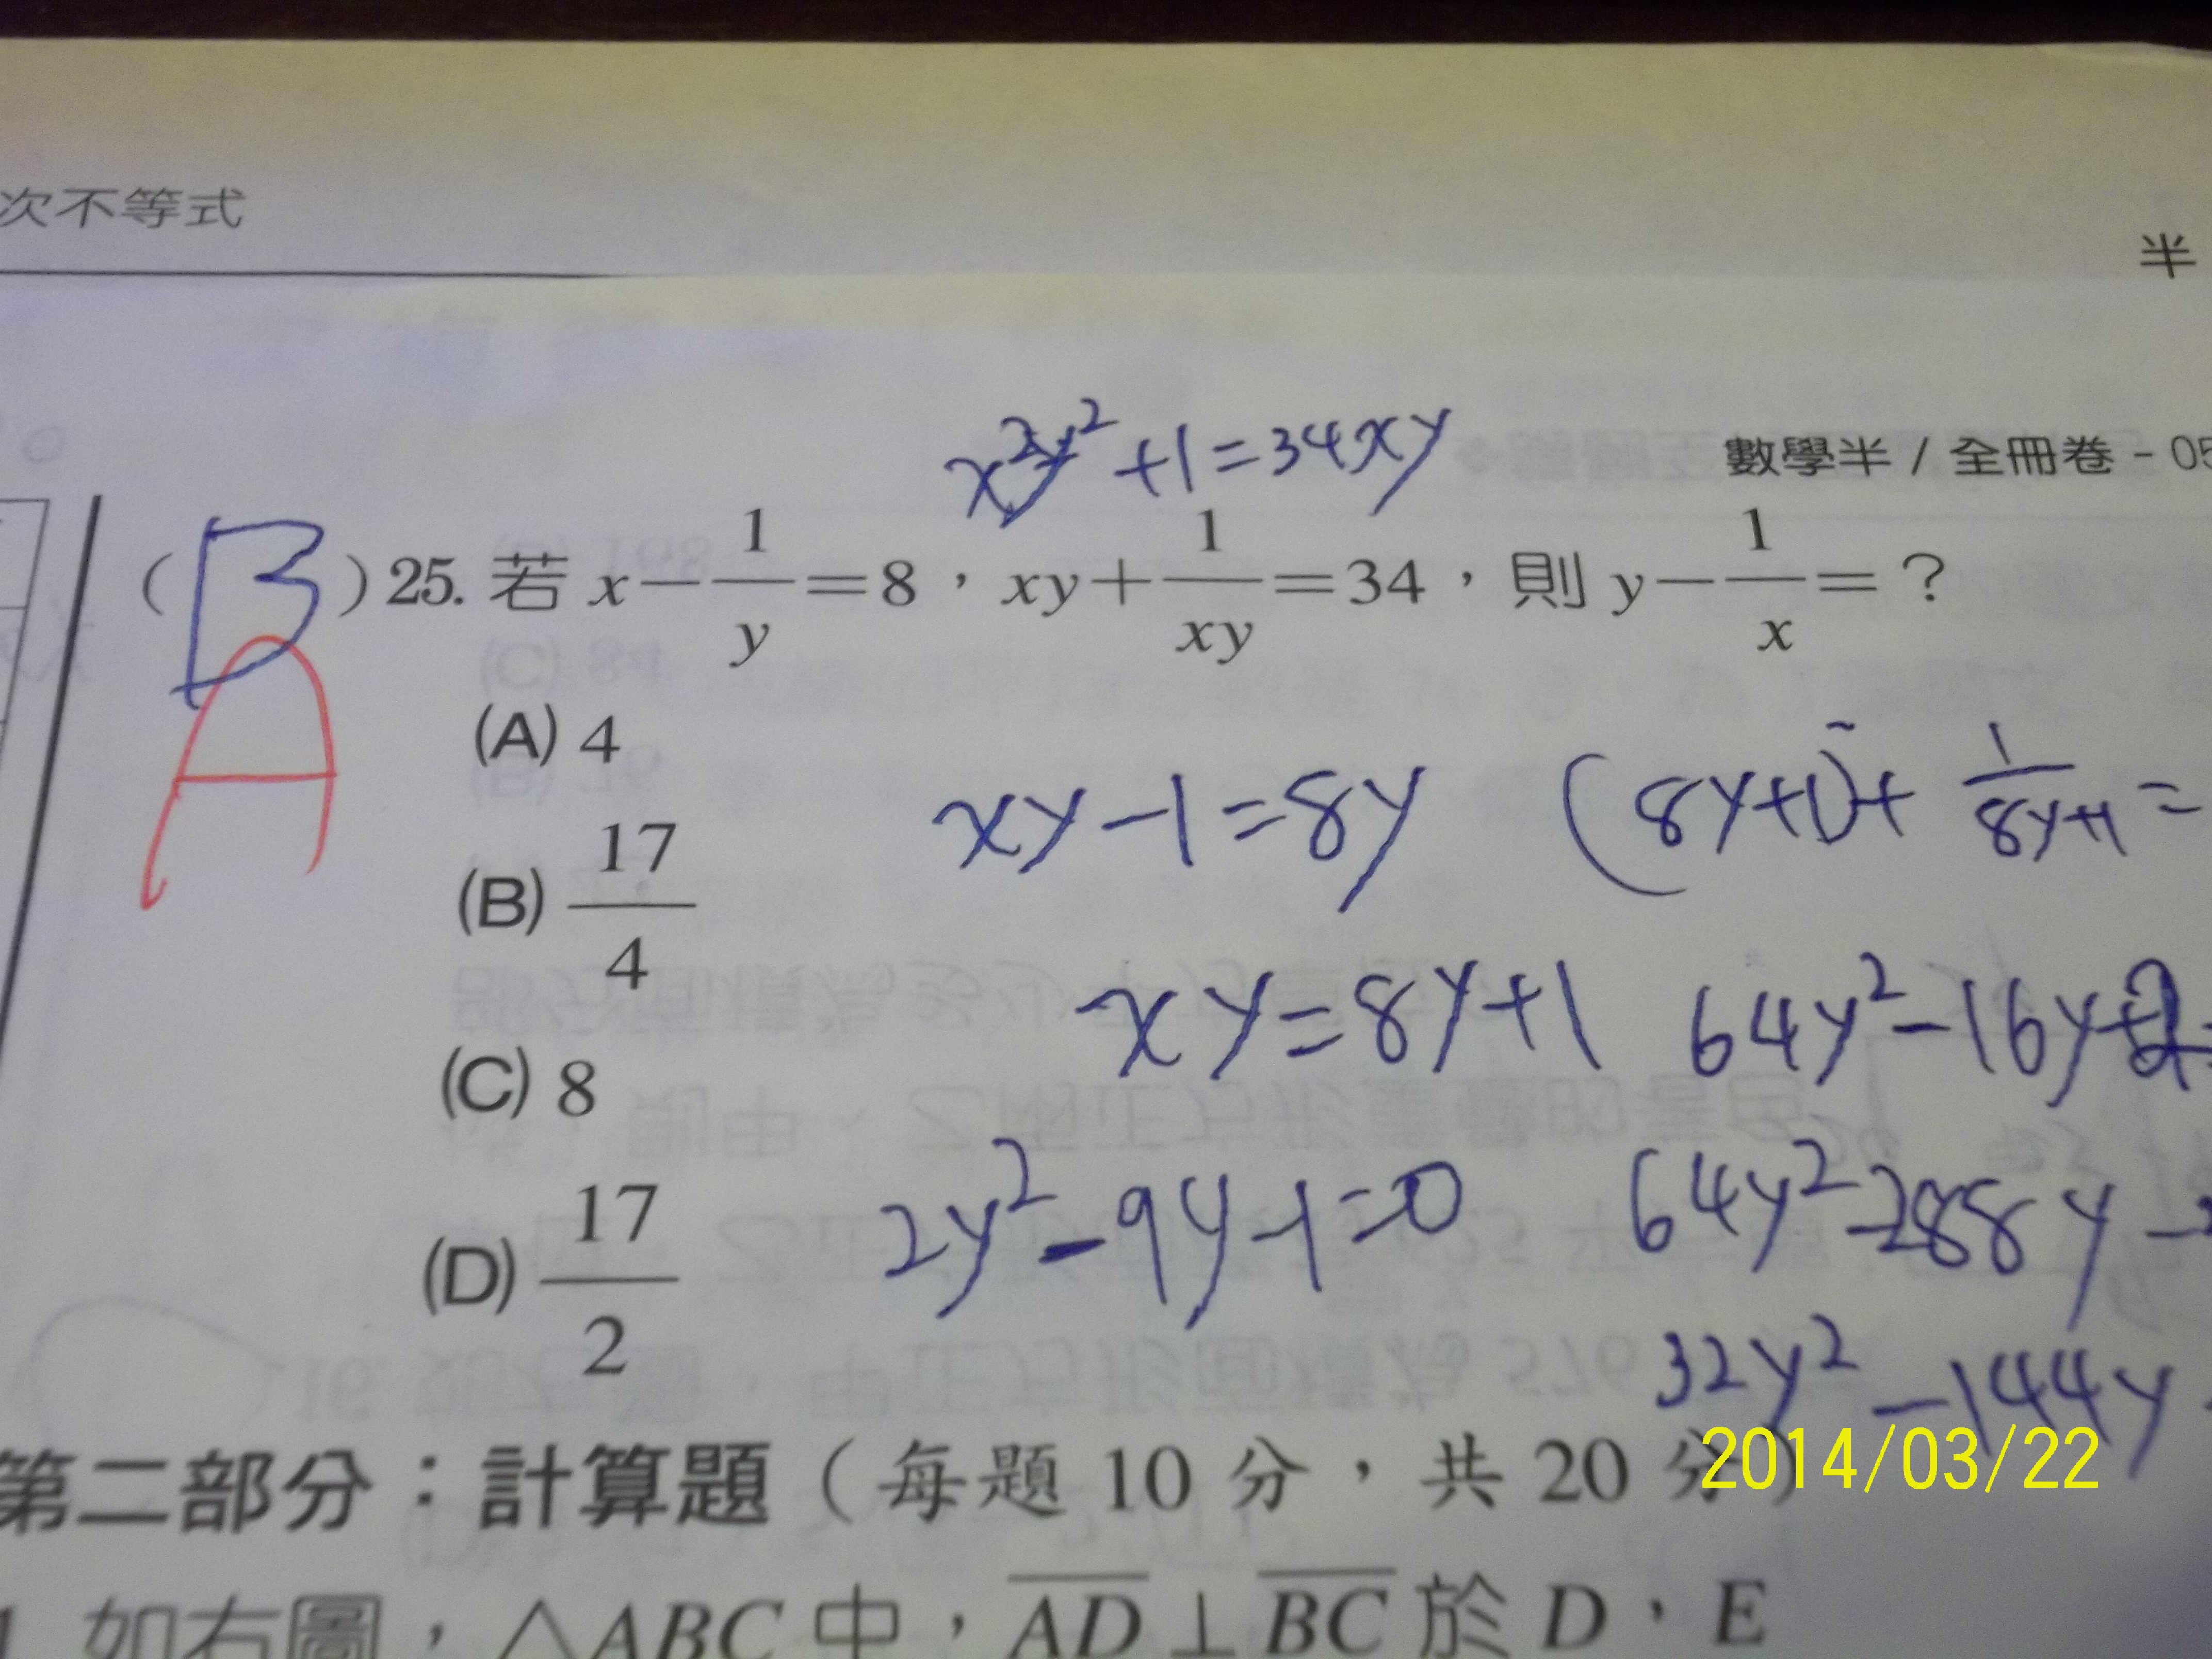 次不等式
半
數學半 / 全冊卷 - 05
x²y² +1=34xy
( B ) 25. 若 x－1/y＝8，xy＋1/xy＝34，則 y－1/x＝？
A
(A) 4
(B) 17/4
(C) 8
(D) 17/2
xy－1＝8y
(8y+1)+ 1/8y+1 =
xy＝8y+1
64y²－16y+2
2y²－9y－1=0
64y²－288y－
32y²－144y
第二部分：計算題（每題 10 分，共 20 分）
2014/03/22
如右圖，△ABC 中，AD⊥BC 於 D，E